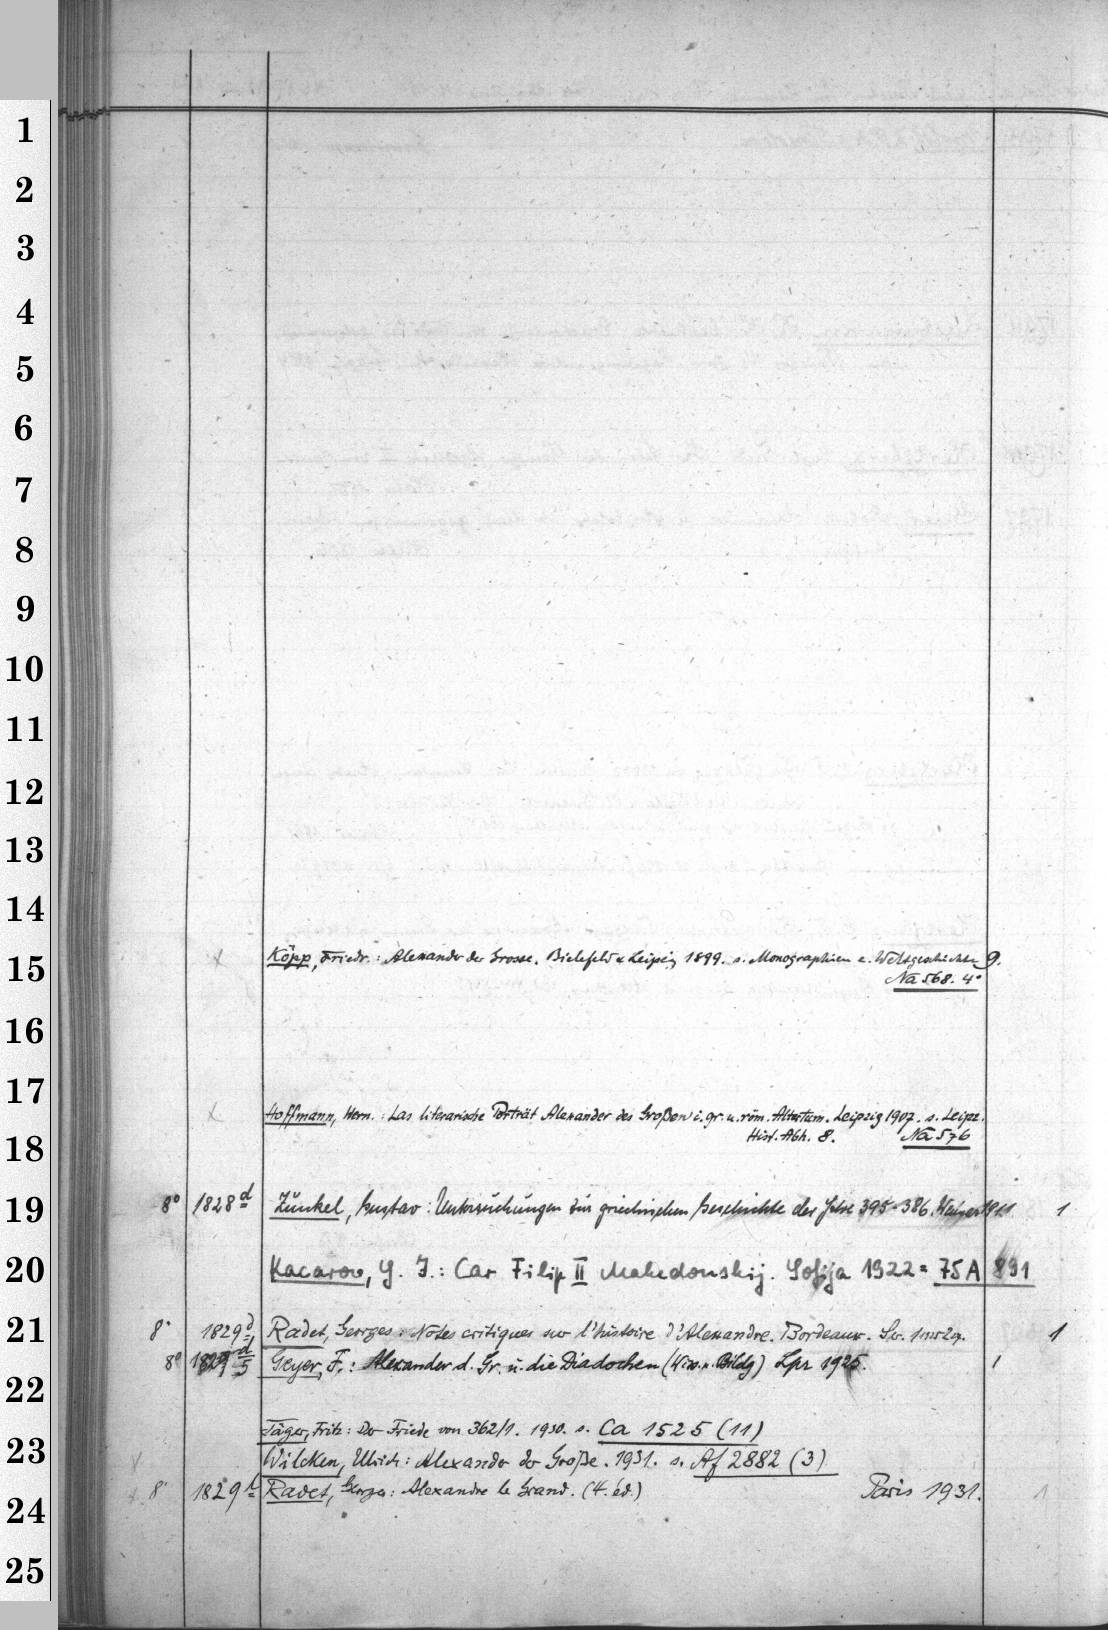 1
2
3
4
5
6
7
8
9
10
11
12
13
14
15
16
17
18
19
20
21
22
23
24
25
x Köpp, Friedr.: Alexander der Grosse. Bielefeld u Leipzig 1899. s. Monographien z. Weltgeschichte 9.
Na 568. 4°
x Hoffmann, Wern.: Das literarische Porträt Alexander des Großen i. gr. u. röm. Altertum. Leipzig 1907. s. Leipz.
Hist. Abh. 8. Na 576
8° 1828 d Zunkel, Gustav: Untersuchungen zur griechischen Geschichte der Jahre 395-386. 1911 1
Kacarow, G. I.: Car Filip II Makedonskij. Sofija 1922 = 75 A 891
8° 1829 d Radet, Georges: Notes critiques sur l'histoire d'Alexandre. Bordeaux. 1
8° 1829 d/5 Geyer, F.: Alexander d. Gr. u. die Diadochen (Wiss. u. Bildg) Lpz 1925. 1
Jäger, Fritz: Der Friede von 362/1. 1930. s. Ca 1525 (11)
Wilcken, Ulrich: Alexander der Große. 1931. s. Af 2882 (3)
8° 1829 Radet, Georges: Alexandre le Grand. (4. éd.) Paris 1931. 1